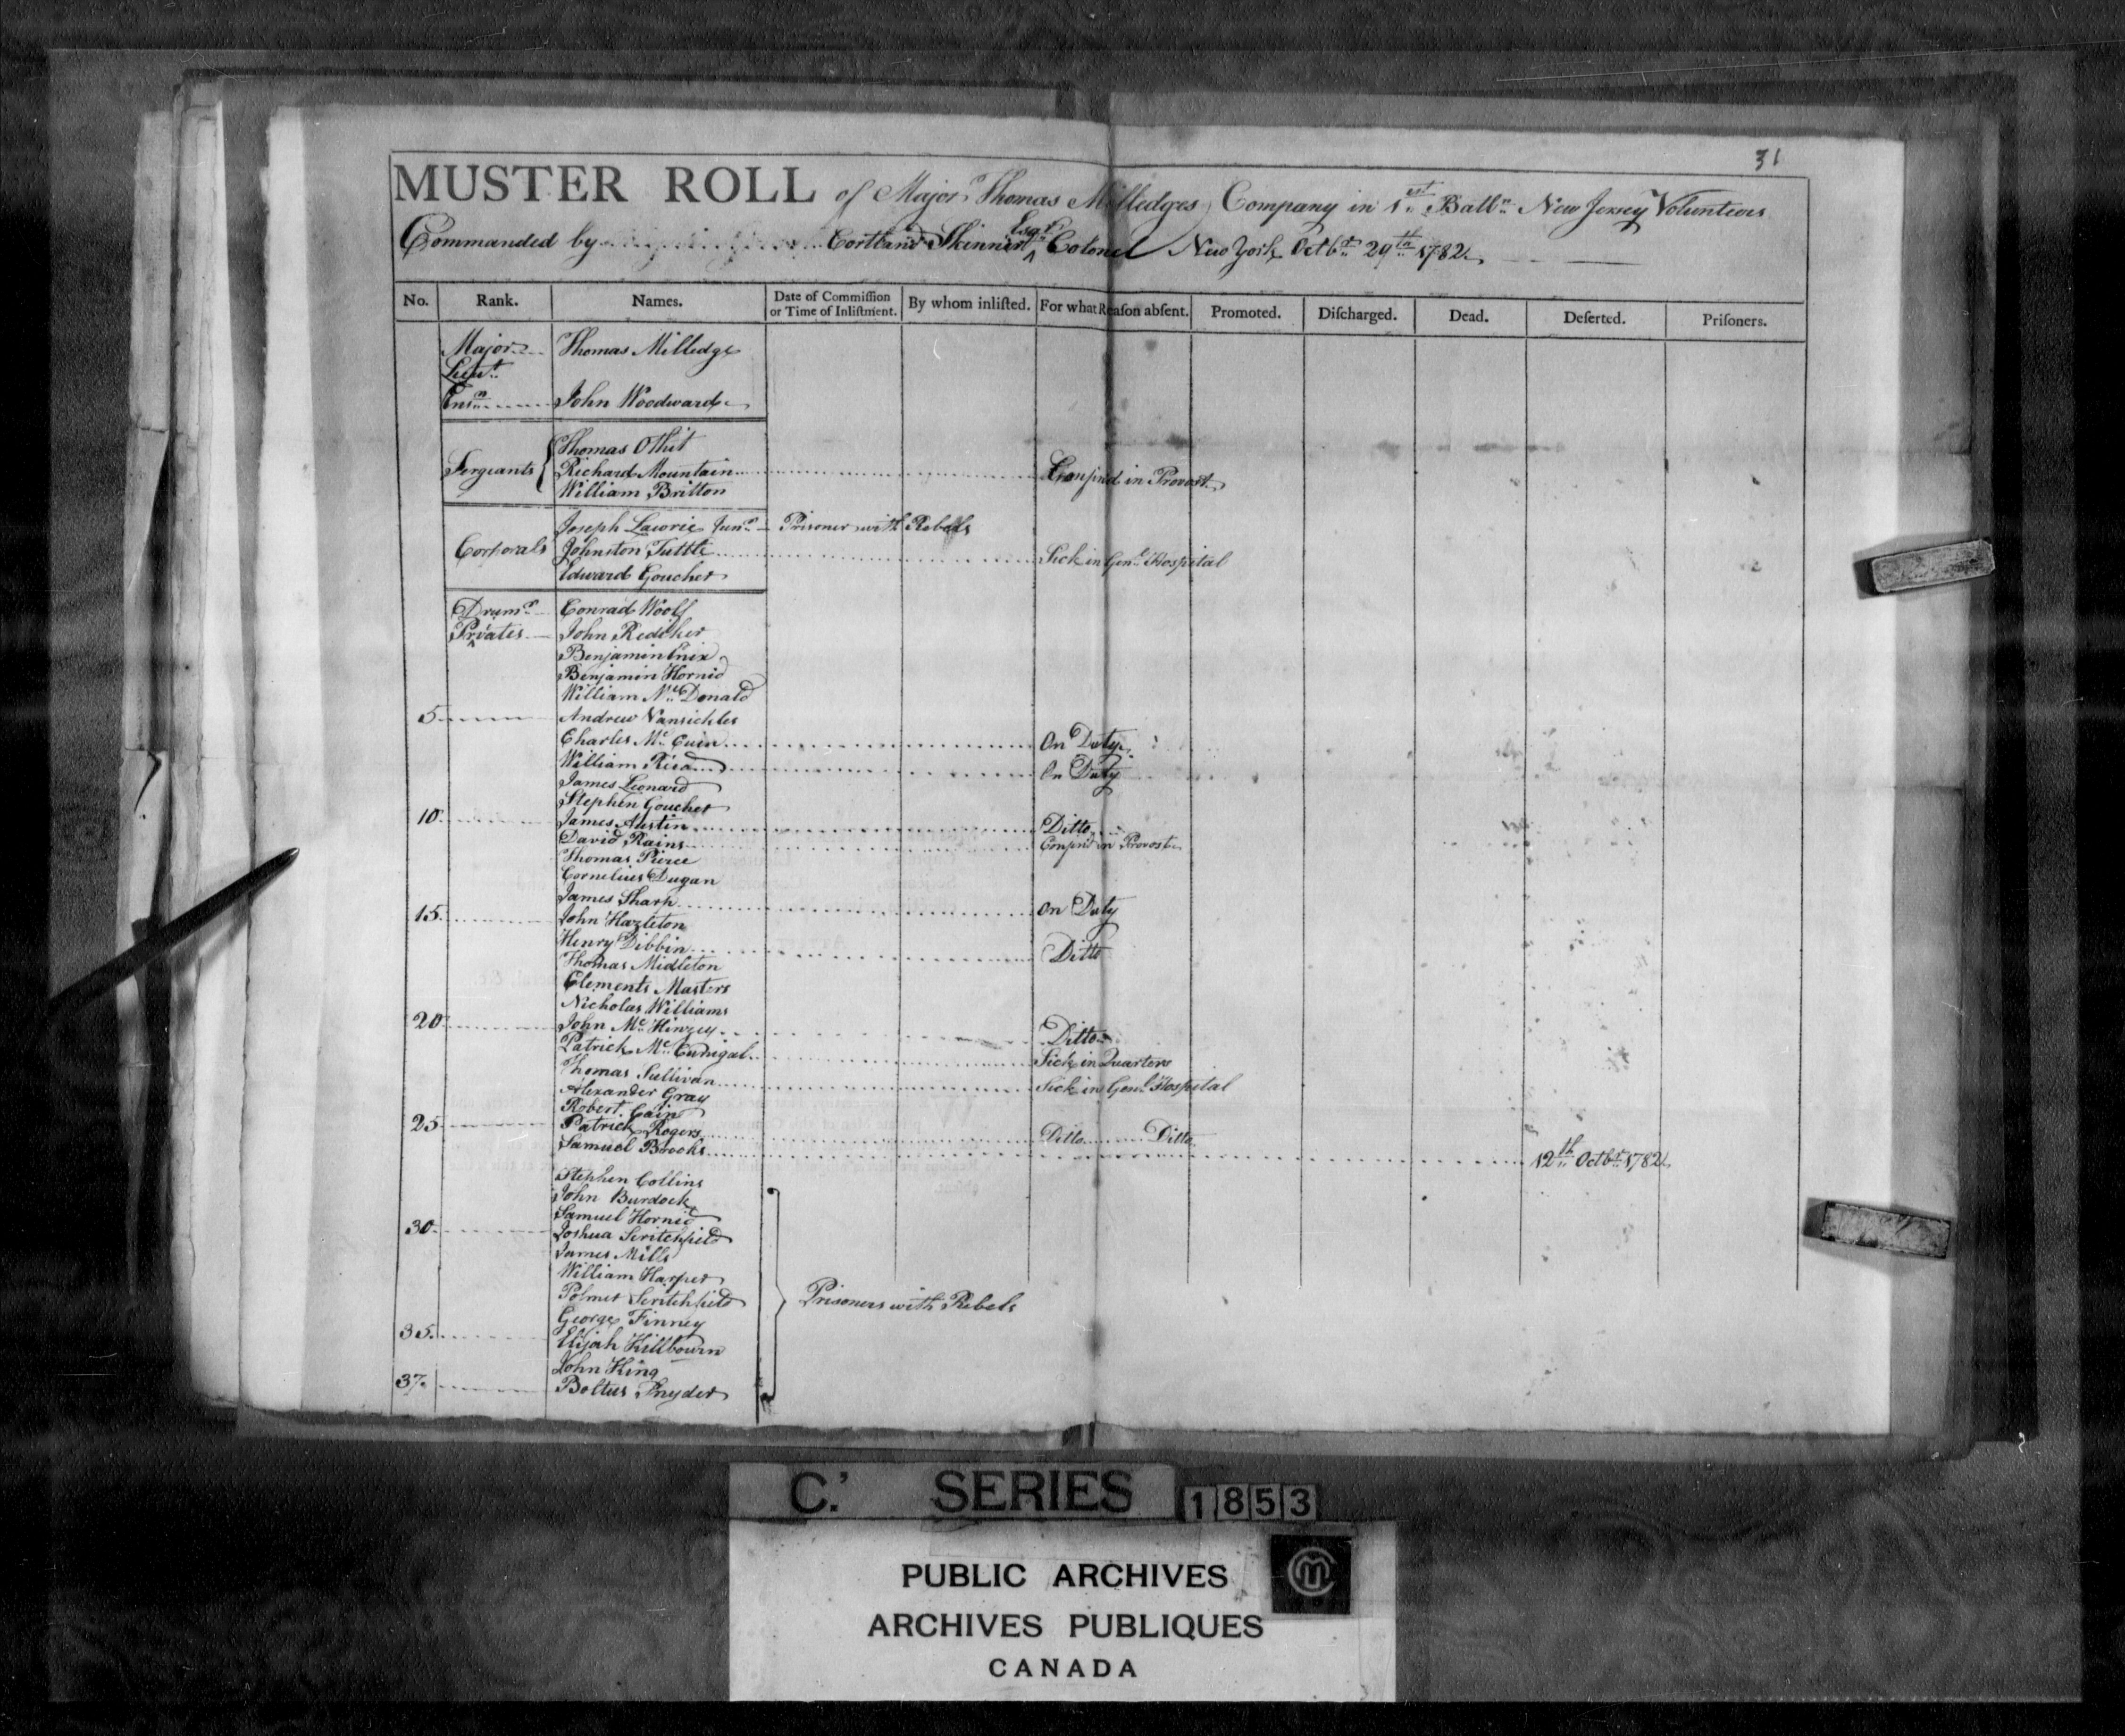 31
MUSTER ROLL of Major Thomas Milledges Company in 1st Battn New Jersey Volunteers
Commanded by Cortland Skinner Esqr Colonel New York Octbr 29th 1782
No. Rank. Names. Date of Commiſſion or Time of Inliſtment. By whom inliſted. For what Reaſon abſent. Promoted. Diſcharged. Dead. Deſerted. Priſoners.
Major Thomas Milledge
Lieut
Ensn John Woodward
Sergeants Thomas Othit
Richard Mountain Confind in Provost
William Britton
Corporals Joseph Lawrie Junr Prisoner with Rebels
Johnston Tuttle Sick in Genl Hospital
Edward Goucher
Drumr Conrad Woolf
Privates John Rediker
Benjamin Enix
Benjamin Hornid
William McDonald
5 Andrew Vansickles
Charles Mc Cuen On Duty
William Read On Duty
James Leonard
Stephen Goucher
10 James Austin Ditto
David Rains Confind in Provost
Thomas Pierce
Cornelius Dugan
James Shark On Duty
15 John Hazleton
Henry Dibbin Ditto
Thomas Midleton
Clements Masters
Nicholas Williams
20 John Mc Kinzey Ditto
Patrick Mc Cudrigal Sick in Quarters
Thomas Sullivan Sick in Genl Hospital
Alexander Gray
Robert Cain
25 Patrick Rogers Ditto Ditto
Samuel Brooks 12th Octbr 1782
Stephen Collins
John Burdock
Samuel Hornid
30 Joshua Scritchfield
James Mills
William Harper
Polmer Scritchfield Prisoners with Rebels
George Finney
35 Elijah Killbourn
John King
37 Boltus Snyder
C.' SERIES 1853
PUBLIC ARCHIVES
ARCHIVES PUBLIQUES
CANADA